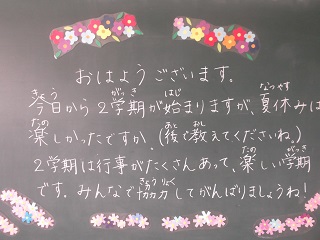 おはようございます。
今日から2学期が始まりますが、夏休みは
楽しかったですか。(後で教えてくださいね。)
2学期は行事がたくさんあって、楽しい学期
です。みんなで協力してがんばりましょうね!